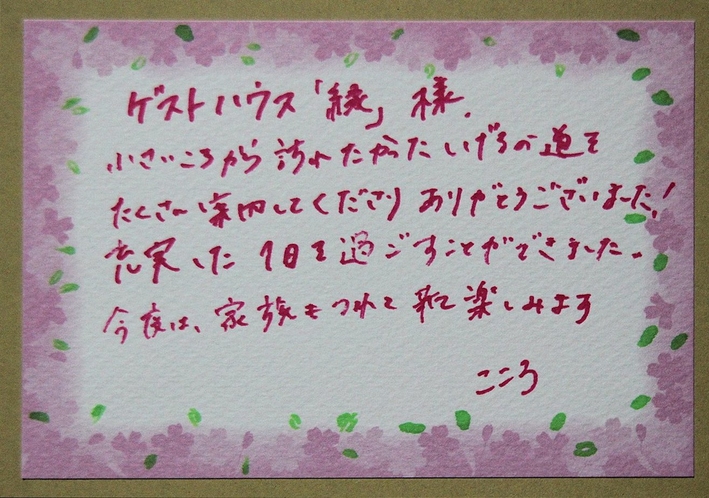 ゲストハウス「縁」様.
小さいころから訪れたかったいげろの道を
たくさん案内してくださりありがとうございました!
充実した1日を過ごすことができました。
今度は、家族をつれて来て楽しみます
こころ